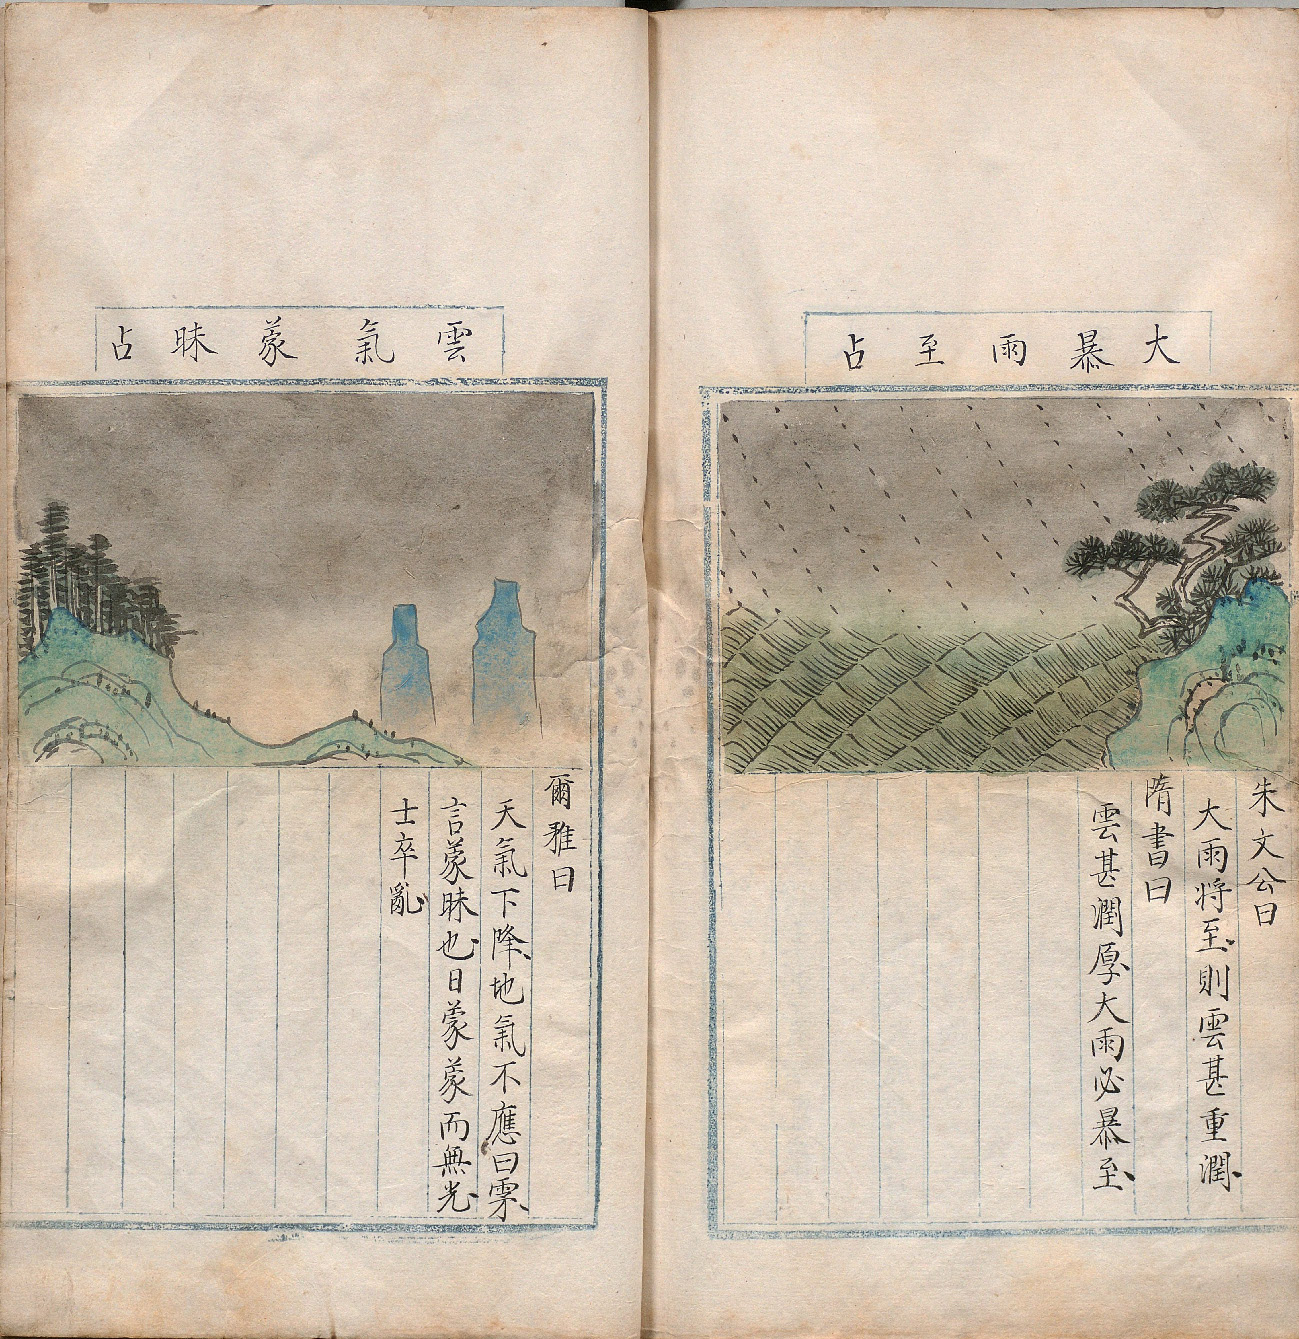 大暴雨至占
朱文公曰
大雨将至則雲甚重潤
隋書曰
雲甚潤厚大雨必暴至
雲氣蒙昧占
爾雅曰
天氣下降地氣不應曰雺
言蒙昧也日蒙蒙而無光
士卒亂